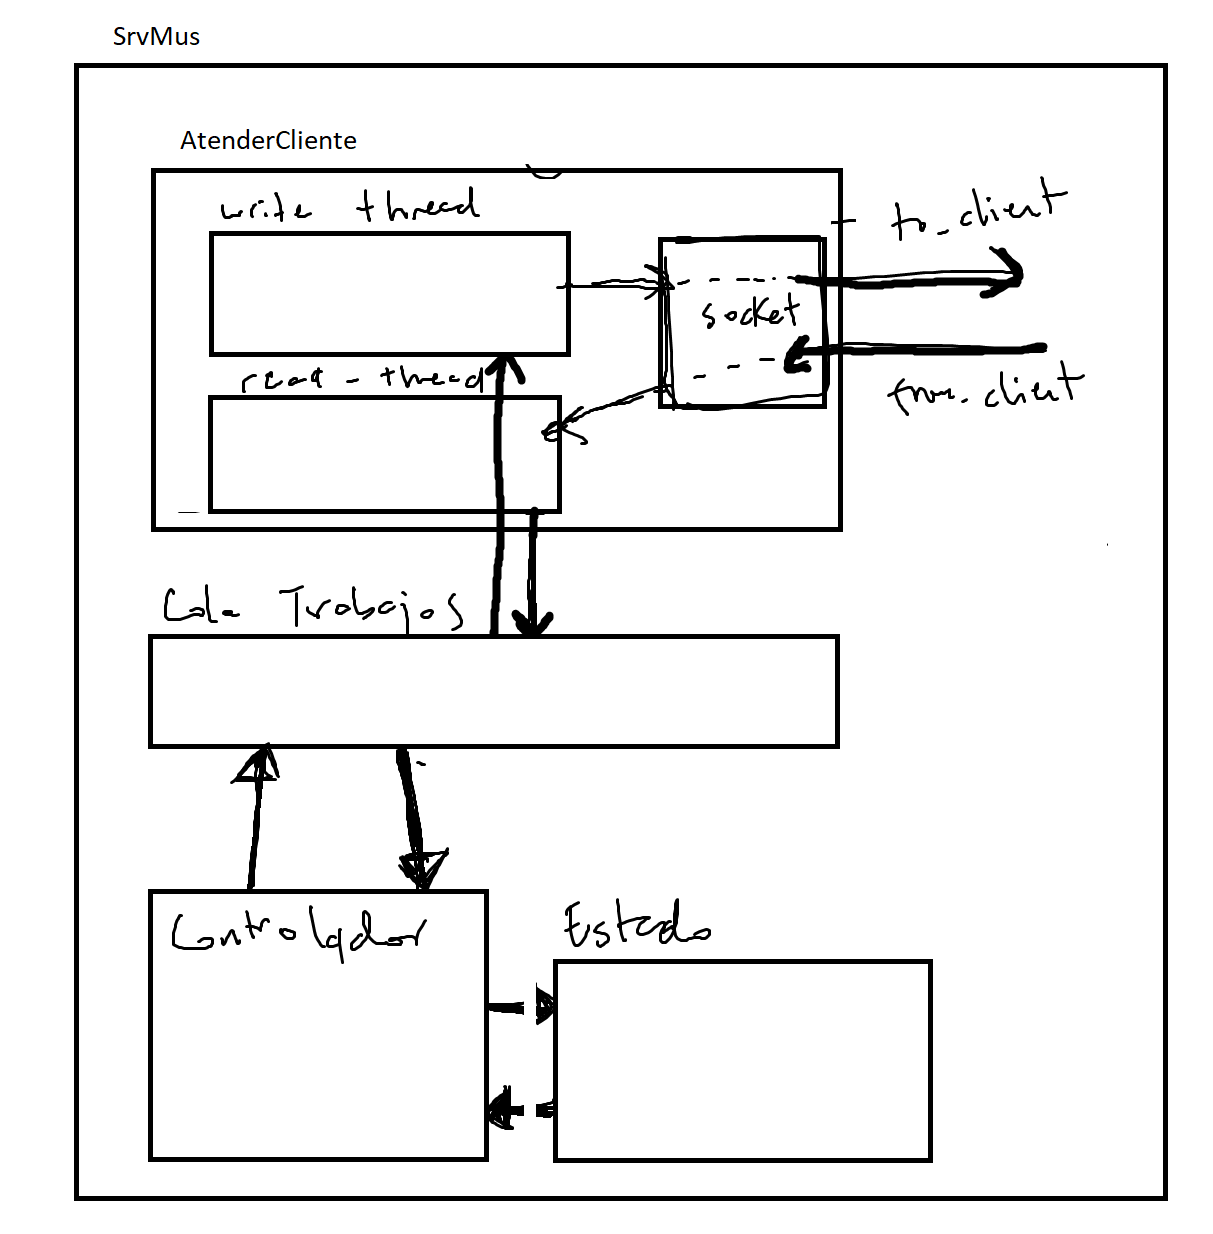 SrvMus
AtenderCliente
write thread
to_client
socket
read-thread
from_client
Cola Trabajos
Controlador
Estado